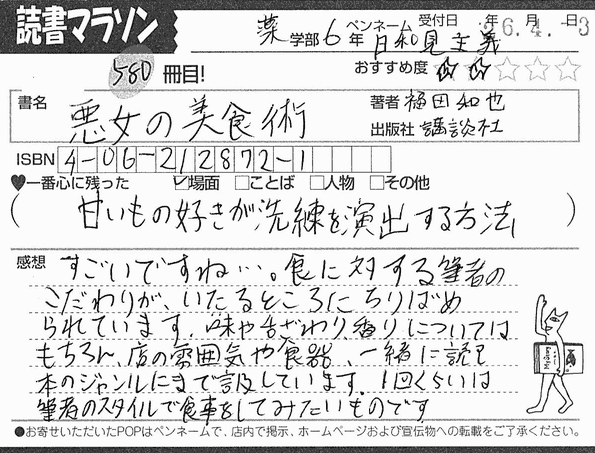 読書マラソン
薬学部6年 ペンネーム 日和見主義 受付日 '26.4.-3 年 月 日
580冊目! おすすめ度 ★★☆☆☆
書名 悪女の美食術 著者 福田和也
出版社 講談社
ISBN 4-06-212872-1
♥一番心に残った ☑場面 □ことば □人物 □その他
(甘いもの好きが洗練を演出する方法)
感想 すごいですね…。食に対する筆者の
こだわりが、いたるところにちりばめ
られています。味や舌ざわり、香りについては
もちろん、店の雰囲気や食器、一緒に読む
本のジャンルにまで言及しています。1回くらいは
筆者のスタイルで食事をしてみたいものです
●お寄せいただいたPOPはペンネームで、店内で掲示、ホームページおよび宣伝物への転載をご了承ください。